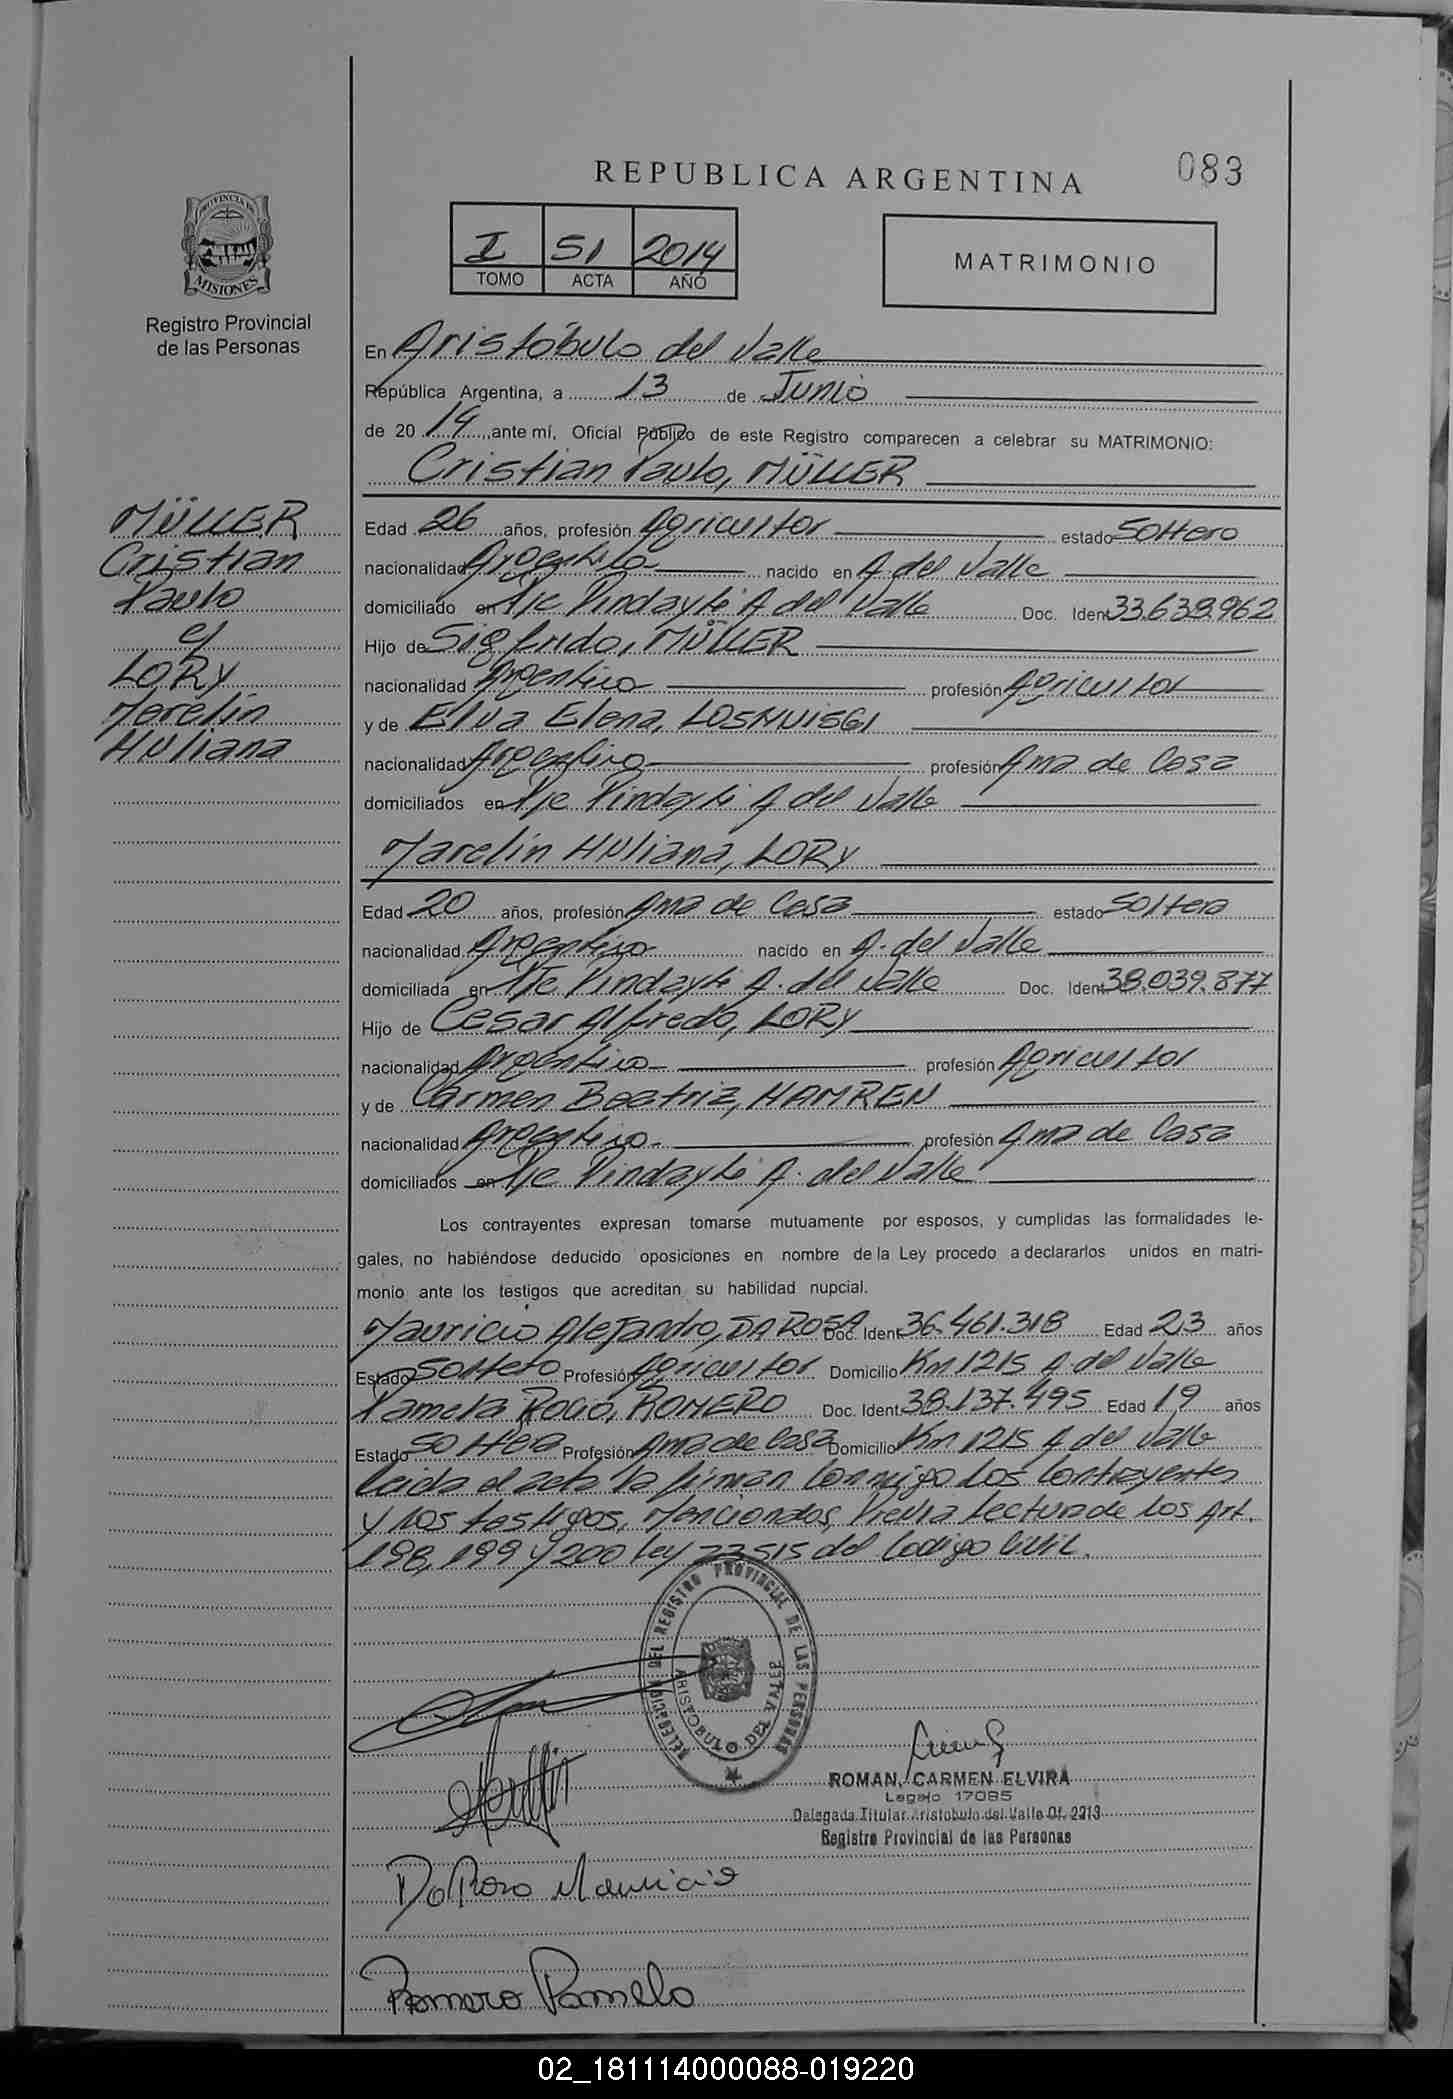 REPUBLICA ARGENTINA
083
I 51 2014
TOMO ACTA AÑO
MATRIMONIO
PROVINCIA DE
MISIONES
Registro Provincial
de las Personas
MÜLLER
Cristian
Paulo
y
LORY
Marelin
HUliana
En Aristóbulo del Valle
República Argentina, a 13 de Junio
de 2014, ante mí, Oficial Público de este Registro comparecen a celebrar su MATRIMONIO:
Cristian Paulo, MÜLLER
Edad 26 años, profesión Agricultor estado Soltero
nacionalidad Argentino nacido en A. del Valle
domiciliado en Pje Pindayti A del Valle Doc. Ident 33.638.962
Hijo de Sigfrido, MÜLLER
nacionalidad Argentino profesión Agricultor
y de Elva Elena, LOSNUISGI
nacionalidad Argentina profesión Ama de Casa
domiciliados en Pje Pindayti A del Valle
Marelin HUliana, LORY
Edad 20 años, profesión Ama de Casa estado Soltera
nacionalidad Argentina nacido en A. del Valle
domiciliada en Pje Pindayti A. del Valle Doc. Ident 38.039.877
Hijo de Cesar Alfredo, LORY
nacionalidad Argentino profesión Agricultor
y de Carmen Beatriz, HAMREN
nacionalidad Argentina profesión Ama de Casa
domiciliados en Pje Pindayti A. del Valle
Los contrayentes expresan tomarse mutuamente por esposos, y cumplidas las formalidades le-
gales, no habiéndose deducido oposiciones en nombre de la Ley procedo a declararlos unidos en matri-
monio ante los testigos que acreditan su habilidad nupcial.
Mauricio Alejandro, DA ROSA Doc. Ident 36.461.318 Edad 23 años
Estado Soltero Profesión Agricultor Domicilio Km 1215 A. del Valle
Pamela Rocio, ROMERO Doc. Ident 38.137.495 Edad 19 años
Estado Soltera Profesión Ama de Casa Domicilio Km 1215 A del Valle
Leida el acta la firman conmigo los contrayentes
y los testigos, Mencionados, Previa Lectura de los Art.
198, 199 y 200 Ley 23515 del Codigo Civil.
DELEGACION DEL REGISTRO PROVINCIAL DE LAS PERSONAS
ARISTOBULO DEL VALLE
ROMAN, CARMEN ELVIRA
Legajo 17085
Delegada Titular Aristobulo del Valle Of. 2213
Registro Provincial de las Personas
Da Rosa Mauricio
Romero Pamela
02_181114000088-019220